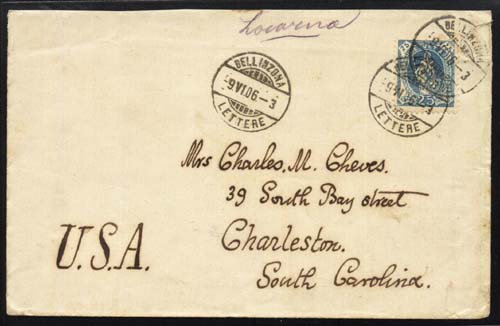 Locarno
BELLINZONA
9 VI.06-3
LETTERE
BELLINZONA
9 VI.06-3
LETTERE
25
Mrs Charles. M. Cheves.
39 South Bay street
Charleston.
South Carolina.
U.S.A.